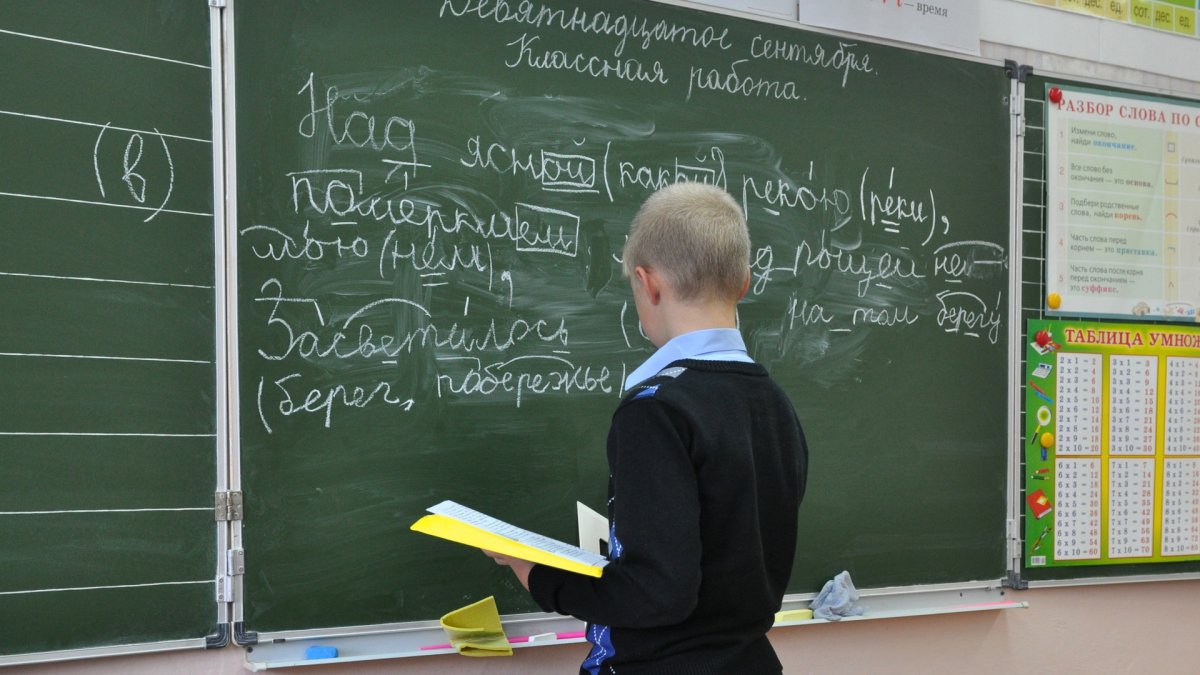 – время
сот. дес. ед.
сот. дес. ед.
Девятнадцатое сентября.
Классная работа.
(в)
Над ясной (какой) рекою (реки),
померкшем
лью (нем), рощей
Засветилось на том берегу
(берег, побережье)
РАЗБОР СЛОВА ПО
1 Измени слово,
найди окончание.
2 Все слово без
окончания — это основа.
3 Подбери родственные
слова, найди корень.
4 Часть слова перед
корнем — это приставка.
5 Часть слова после корня
перед окончанием —
это суффикс.
ТАБЛИЦА УМНОЖ
2 x 1 = 2 3 x 1 = 3
2 x 2 = 4 3 x 2 = 6
2 x 3 = 6 3 x 3 = 9
2 x 4 = 8 3 x 4 = 12
2 x 5 = 10 3 x 5 = 15
2 x 6 = 12 3 x 6 = 18
2 x 7 = 14 3 x 7 = 21
2 x 8 = 16 3 x 8 = 24
2 x 9 = 18 3 x 9 = 27
2 x 10 = 20 3 x 10 = 30
6 x 1 = 6 7 x 1 = 7
6 x 2 = 12 7 x 2 = 14
6 x 3 = 18 7 x 3 = 21
6 x 4 = 24 7 x 4 = 28
6 x 5 = 30 7 x 5 = 35
6 x 6 = 36 7 x 6 = 42
6 x 7 = 42 7 x 7 = 49
6 x 8 = 48 7 x 8 = 56
6 x 9 = 54 7 x 9 = 63
6 x 10 = 60 7 x 10 = 70